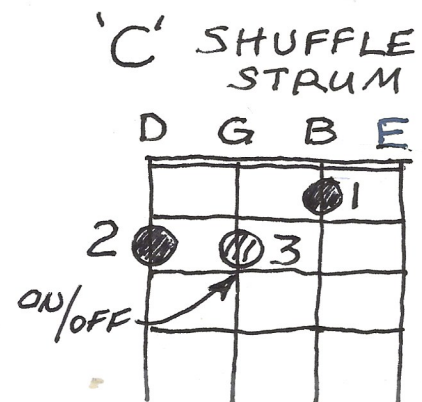 'C' SHUFFLE
STRUM
D G B E
1
2 3
ON/OFF